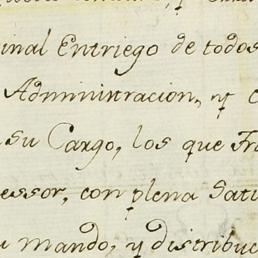 inal Entriego de todos
Administracion, y
su Cargo, los que
essor, con plena
mando, y distribuc